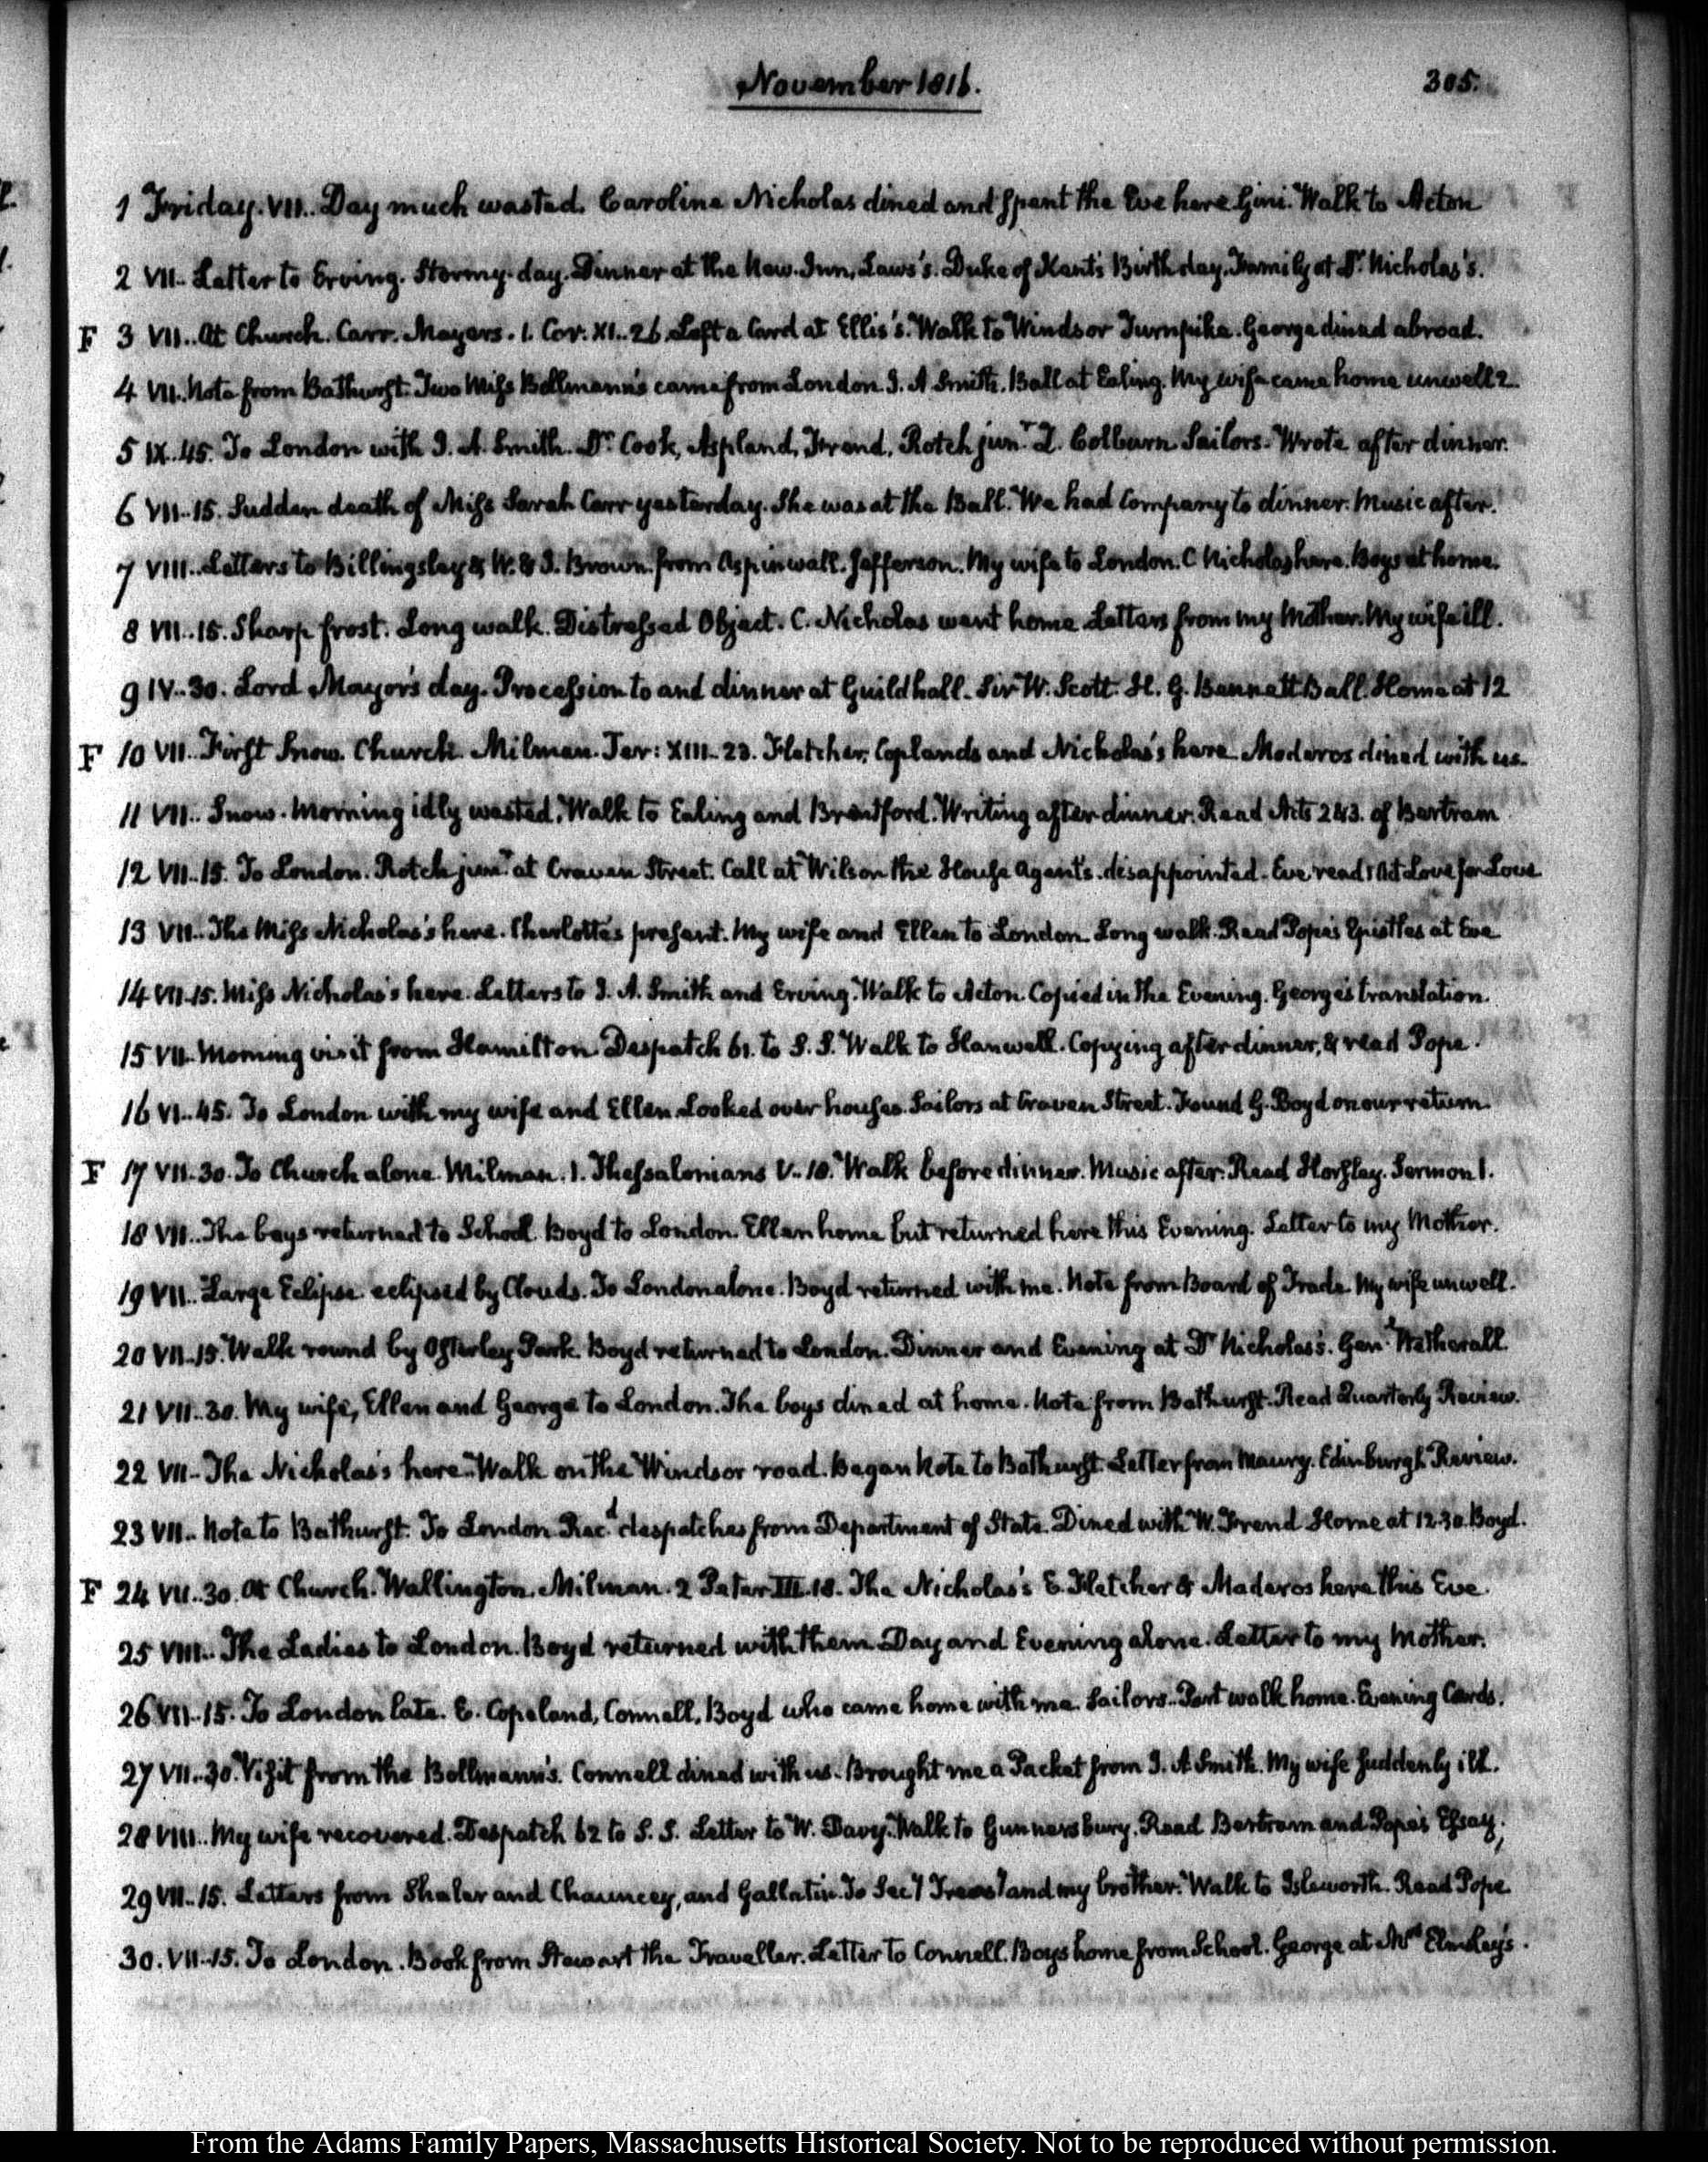 November 1816.
305.
1 Friday. VII.. Day much wasted. Caroline Nicholas dined and spent the Eve here Gini. Walk to Acton
2 VII.. Letter to Erving. Stormy day. Dinner at the New Inn, Laws's. Duke of Kent's Birth day. Family at Dr. Nicholas's.
F 3 VII.. At Church. Carr. Mayers. 1. Cor. XI..26. Left a Card at Ellis's. Walk to Windsor Turnpike. George dined abroad.
4 VII.. Note from Bathurst. Two Miss Bollmann's came from London. J. A Smith. Ball at Ealing. My wife came home unwell 2.
5 IX..45. To London with J. A. Smith. Dr. Cook, Aspland, Frend, Rotch junr. Z. Colburn. Sailors. Wrote after dinner.
6 VII..15. Sudden death of Miss Sarah Carr yesterday. She was at the Ball. We had Company to dinner. Music after.
7 VIII.. Letters to Billingsley & W. & J. Brown. from Aspinwall. Jefferson. My wife to London. C Nicholas here. Boys at home.
8 VII..15. Sharp frost. Long walk. Distressed Object. C. Nicholas went home. Letters from my Mother. My wife ill.
9 IV..30. Lord Mayor's day. Procession to and dinner at Guildhall. Sir W. Scott. H. G. Bennett Ball. Home at 12
F 10 VII.. First Snow. Church. Milman. Jer: XIII. 23. Fletcher, Coplands and Nicholas's here. Mederos dined with us.
11 VII.. Snow. Morning idly wasted. Walk to Ealing and Brentford. Writing after dinner. Read Acts 2 & 3. of Bertram
12 VII..15. To London. Rotch junr. at Craven Street. Call at Wilson the House Agent's. disappointed. Eve read 1 Act Love for Love
13 VII.. The Miss Nicholas's here. Charlotte's present. My wife and Ellen to London. Long walk. Read Pope's Epistles at Eve
14 VII..15. Miss Nicholas's here. Letters to J. A. Smith and Erving. Walk to Acton. Copied in the Evening. George's translation.
15 VII.. Morning visit from Hamilton. Despatch 61. to S. S. Walk to Hanwell. Copying after dinner, & read Pope.
16 VI..45. To London with my wife and Ellen. Looked over houses. Sailors at Craven Street. Found G. Boyd on our return.
F 17 VII..30. To Church alone. Milman. 1. Thessalonians V..18. Walk before dinner. Music after. Read Horsley. Sermon 1.
18 VII.. The boys returned to School. Boyd to London. Ellen home but returned here this Evening. Letter to my Mother.
19 VII.. Large Eclipse. eclipsed by Clouds. To London alone. Boyd returned with me. Note from Board of Trade. My wife unwell.
20 VII..15. Walk round by Osterley Park. Boyd returned to London. Dinner and Evening at Dr Nicholas's. Genl. Wetherall.
21 VII..30. My wife, Ellen and George to London. The boys dined at home. Note from Bathurst. Read Quarterly Review.
22 VII.. The Nicholas's here. Walk on the Windsor road. Began Note to Bathurst. Letter from Maury. Edinburgh Review.
23 VII.. Note to Bathurst. To London. Recd. despatches from Department of State. Dined with W. Frend. Home at 12.30. Boyd.
F 24 VII..30. At Church. Wallington. Milman. 2 Peter III.18. The Nicholas's E. Fletcher & Maderos here this Eve.
25 VIII.. The Ladies to London. Boyd returned with them. Day and Evening alone. Letter to my Mother.
26 VII..15. To London late. E. Copeland, Connell, Boyd who came home with me. Sailors.. Part walk home. Evening Cards.
27 VII..30. Visit from the Bollmann's. Connell dined with us. Brought me a Packet from J. A Smith. My wife suddenly ill.
28 VIII.. My wife recovered. Despatch 62 to S. S. Letter to W. Davy. Walk to Gunnersbury. Read Bertram and Pope's Essay.
29 VII..15. Letters from Shaler and Chauncey, and Gallatin. To Secy Treasy and my brother. Walk to Isleworth. Read Pope
30. VII..15. To London. Book from Stewart the Traveller. Letter to Connell. Boys home from School. George at Mrs Elmsley's.
From the Adams Family Papers, Massachusetts Historical Society. Not to be reproduced without permission.